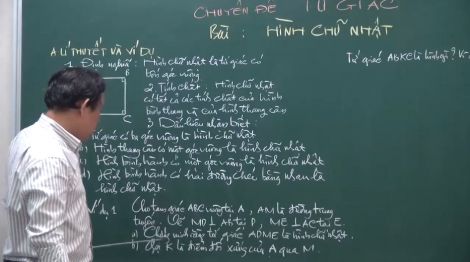 CHUYÊN ĐỀ TỨ GIÁC
Bài: HÌNH CHỮ NHẬT
A LÍ THUYẾT VÀ VÍ DỤ
Tứ giác ABKC là hình gì? Vì
1. Định nghĩa: Hình chữ nhật là tứ giác có
bốn góc vuông
B
C
2. Tính chất: Hình chữ nhật
có tất cả các tính chất của hình
bình hành và của hình thang cân
3. Dấu hiệu nhận biết:
tứ giác có ba góc vuông là hình chữ nhật
Hình thang cân có một góc vuông là hình chữ nhật
c) Hình bình hành có một góc vuông là hình chữ nhật
d) Hình bình hành có hai đường chéo bằng nhau là
hình chữ nhật.
Ví dụ 1 Cho tam giác ABC vuông tại A, AM là đường trung
tuyến. Vẽ MD ⊥ AB tại D, ME ⊥ AC tại E.
a) Chứng minh rằng tứ giác ADME là hình chữ nhật.
b) Gọi K là điểm đối xứng của A qua M.